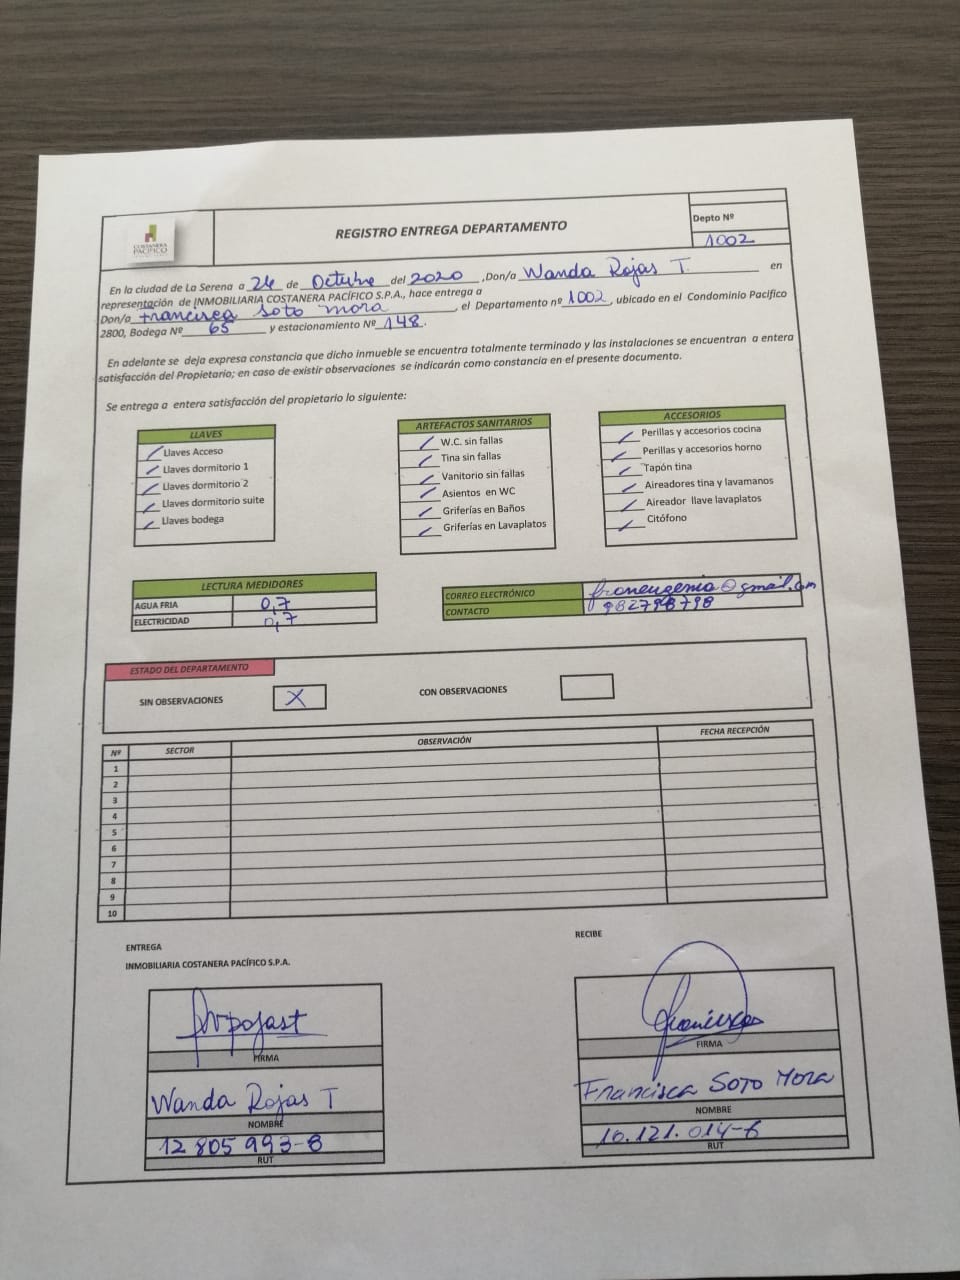 COSTANERA PACÍFICO
REGISTRO ENTREGA DEPARTAMENTO
Depto Nº
1002
En la ciudad de La Serena a 26 de Octubre del 2020 ,Don/a Wanda Rojas T. en
representación de INMOBILIARIA COSTANERA PACÍFICO S.P.A., hace entrega a
Don/a Francisca Soto Mora, el Departamento nº 1002, ubicado en el Condominio Pacífico
2800, Bodega Nº 65 y estacionamiento Nº 148.
En adelante se deja expresa constancia que dicho inmueble se encuentra totalmente terminado y las instalaciones se encuentran a entera
satisfacción del Propietario; en caso de existir observaciones se indicarán como constancia en el presente documento.
Se entrega a entera satisfacción del propietario lo siguiente:
LLAVES
Llaves Acceso
Llaves dormitorio 1
Llaves dormitorio 2
Llaves dormitorio suite
Llaves bodega
ARTEFACTOS SANITARIOS
W.C. sin fallas
Tina sin fallas
Vanitorio sin fallas
Asientos en WC
Griferías en Baños
Griferías en Lavaplatos
ACCESORIOS
Perillas y accesorios cocina
Perillas y accesorios horno
Tapón tina
Aireadores tina y lavamanos
Aireador llave lavaplatos
Citófono
LECTURA MEDIDORES
AGUA FRIA 0,7
ELECTRICIDAD 0,7
CORREO ELECTRÓNICO franeugenia@gmail.com
CONTACTO
ESTADO DEL DEPARTAMENTO
SIN OBSERVACIONES X
CON OBSERVACIONES
Nº SECTOR OBSERVACIÓN FECHA RECEPCIÓN
1
2
3
4
5
6
7
8
9
10
ENTREGA
INMOBILIARIA COSTANERA PACÍFICO S.P.A.
FIRMA
Wanda Rojas T
NOMBRE
12 805 993-8
RUT
RECIBE
Francisca
FIRMA
Francisca Soto Mora
NOMBRE
10.121.014-6
RUT